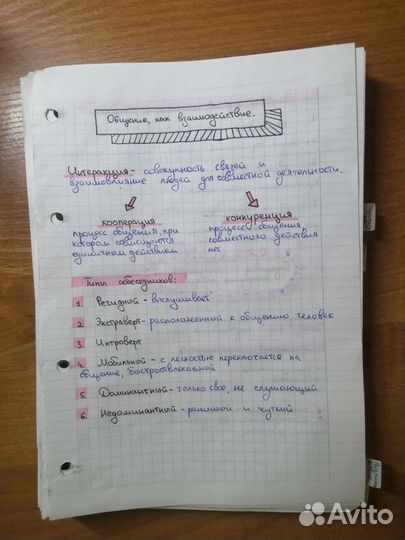 Общение, как взаимодействие.
Интеракция - совокупность связей и
взаимовлияние людей для совместной деятельности.
кооперация
процесс общения, при
котором совмещаются
единичным действием
конкуренция
процесс общения,
совместного действия
нет
Типы собеседников:
1. Регидный - выслушивает
2. Экстраверт - расположенный к общению человек
3. Интроверт
4. Мобильный - с легкостью переключается на
общение, быстроотвлекаемой
5. Доминантный - только свое, не слушающий
6. Недоминантный - ранимый и чуткий
Avito